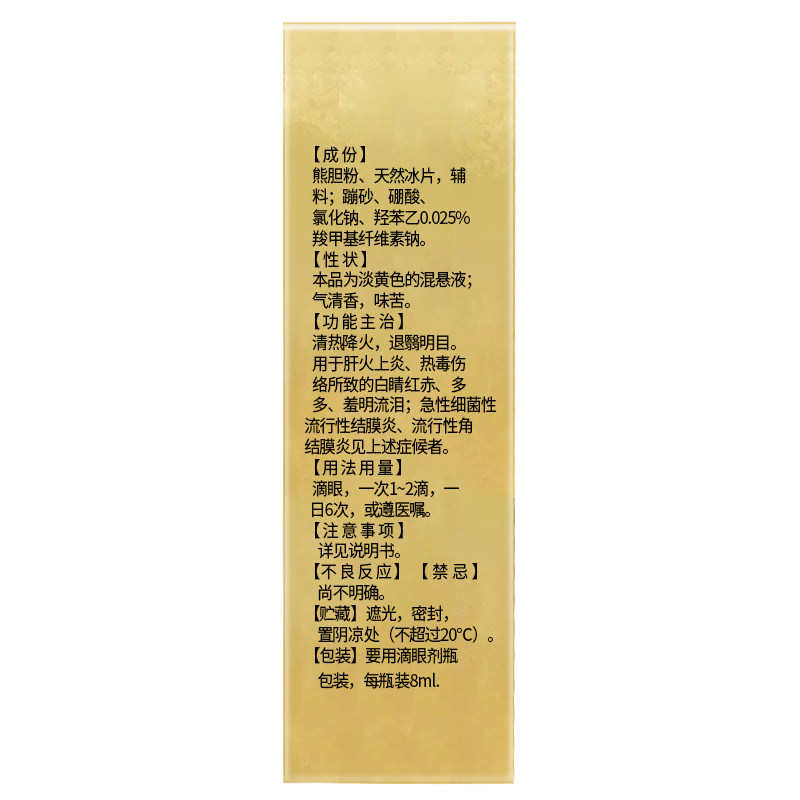 【成份】
熊胆粉、天然冰片，辅
料；蹦砂、硼酸、
氯化钠、羟苯乙0.025%
羧甲基纤维素钠。
【性状】
本品为淡黄色的混悬液；
气清香，味苦。
【功能主治】
清热降火，退翳明目。
用于肝火上炎、热毒伤
络所致的白睛红赤、多
多、羞明流泪；急性细菌性
流行性结膜炎、流行性角
结膜炎见上述症候者。
【用法用量】
滴眼，一次1~2滴，一
日6次，或遵医嘱。
【注意事项】
详见说明书。
【不良反应】【禁忌】
尚不明确。
【贮藏】遮光，密封，
置阴凉处（不超过20°C）。
【包装】要用滴眼剂瓶
包装，每瓶装8ml.